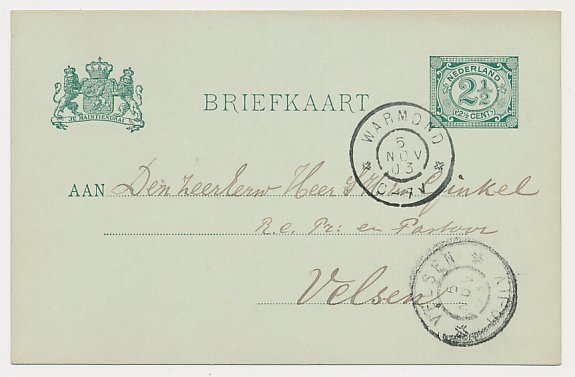 JE MAINTIENDRAI
BRIEFKAART
NEDERLAND
2½
2½ CENT
WARMOND
5
NOV
03
AAN Den zeereerw Heer Ginkel
R.C. Pr: en Pastoor
Velsen
VELSEN
5
NOV